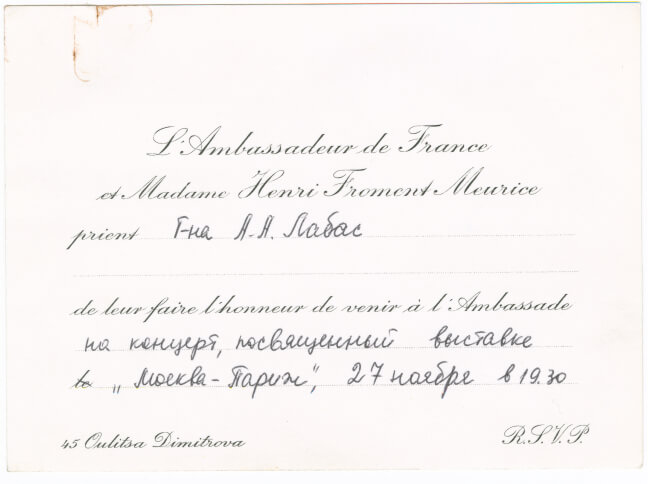 L'Ambassadeur de France
et Madame Henri Froment Meurice
prient Г-на А.А. Лабас
de leur faire l'honneur de venir à l'Ambassade
на концерт, посвященный выставке
le „Москва-Париж", 27 ноября в 19.30
45 Oulitsa Dimitrova
R.S.V.P.